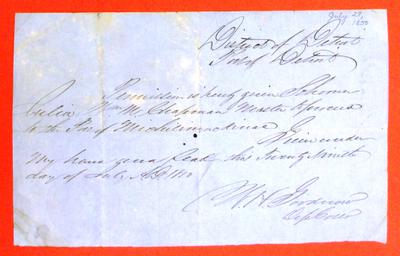 July 29, 1850
District of Detroit
Port of Detroit
Permission is hereby given Schooner
Julia Wm M. Chapman Master to proceed
to the Port of Michilimackinac
Given under
My hand and seal this Twenty Ninth
day of July AD 1850
W. H. Goodnow
Dep Coll